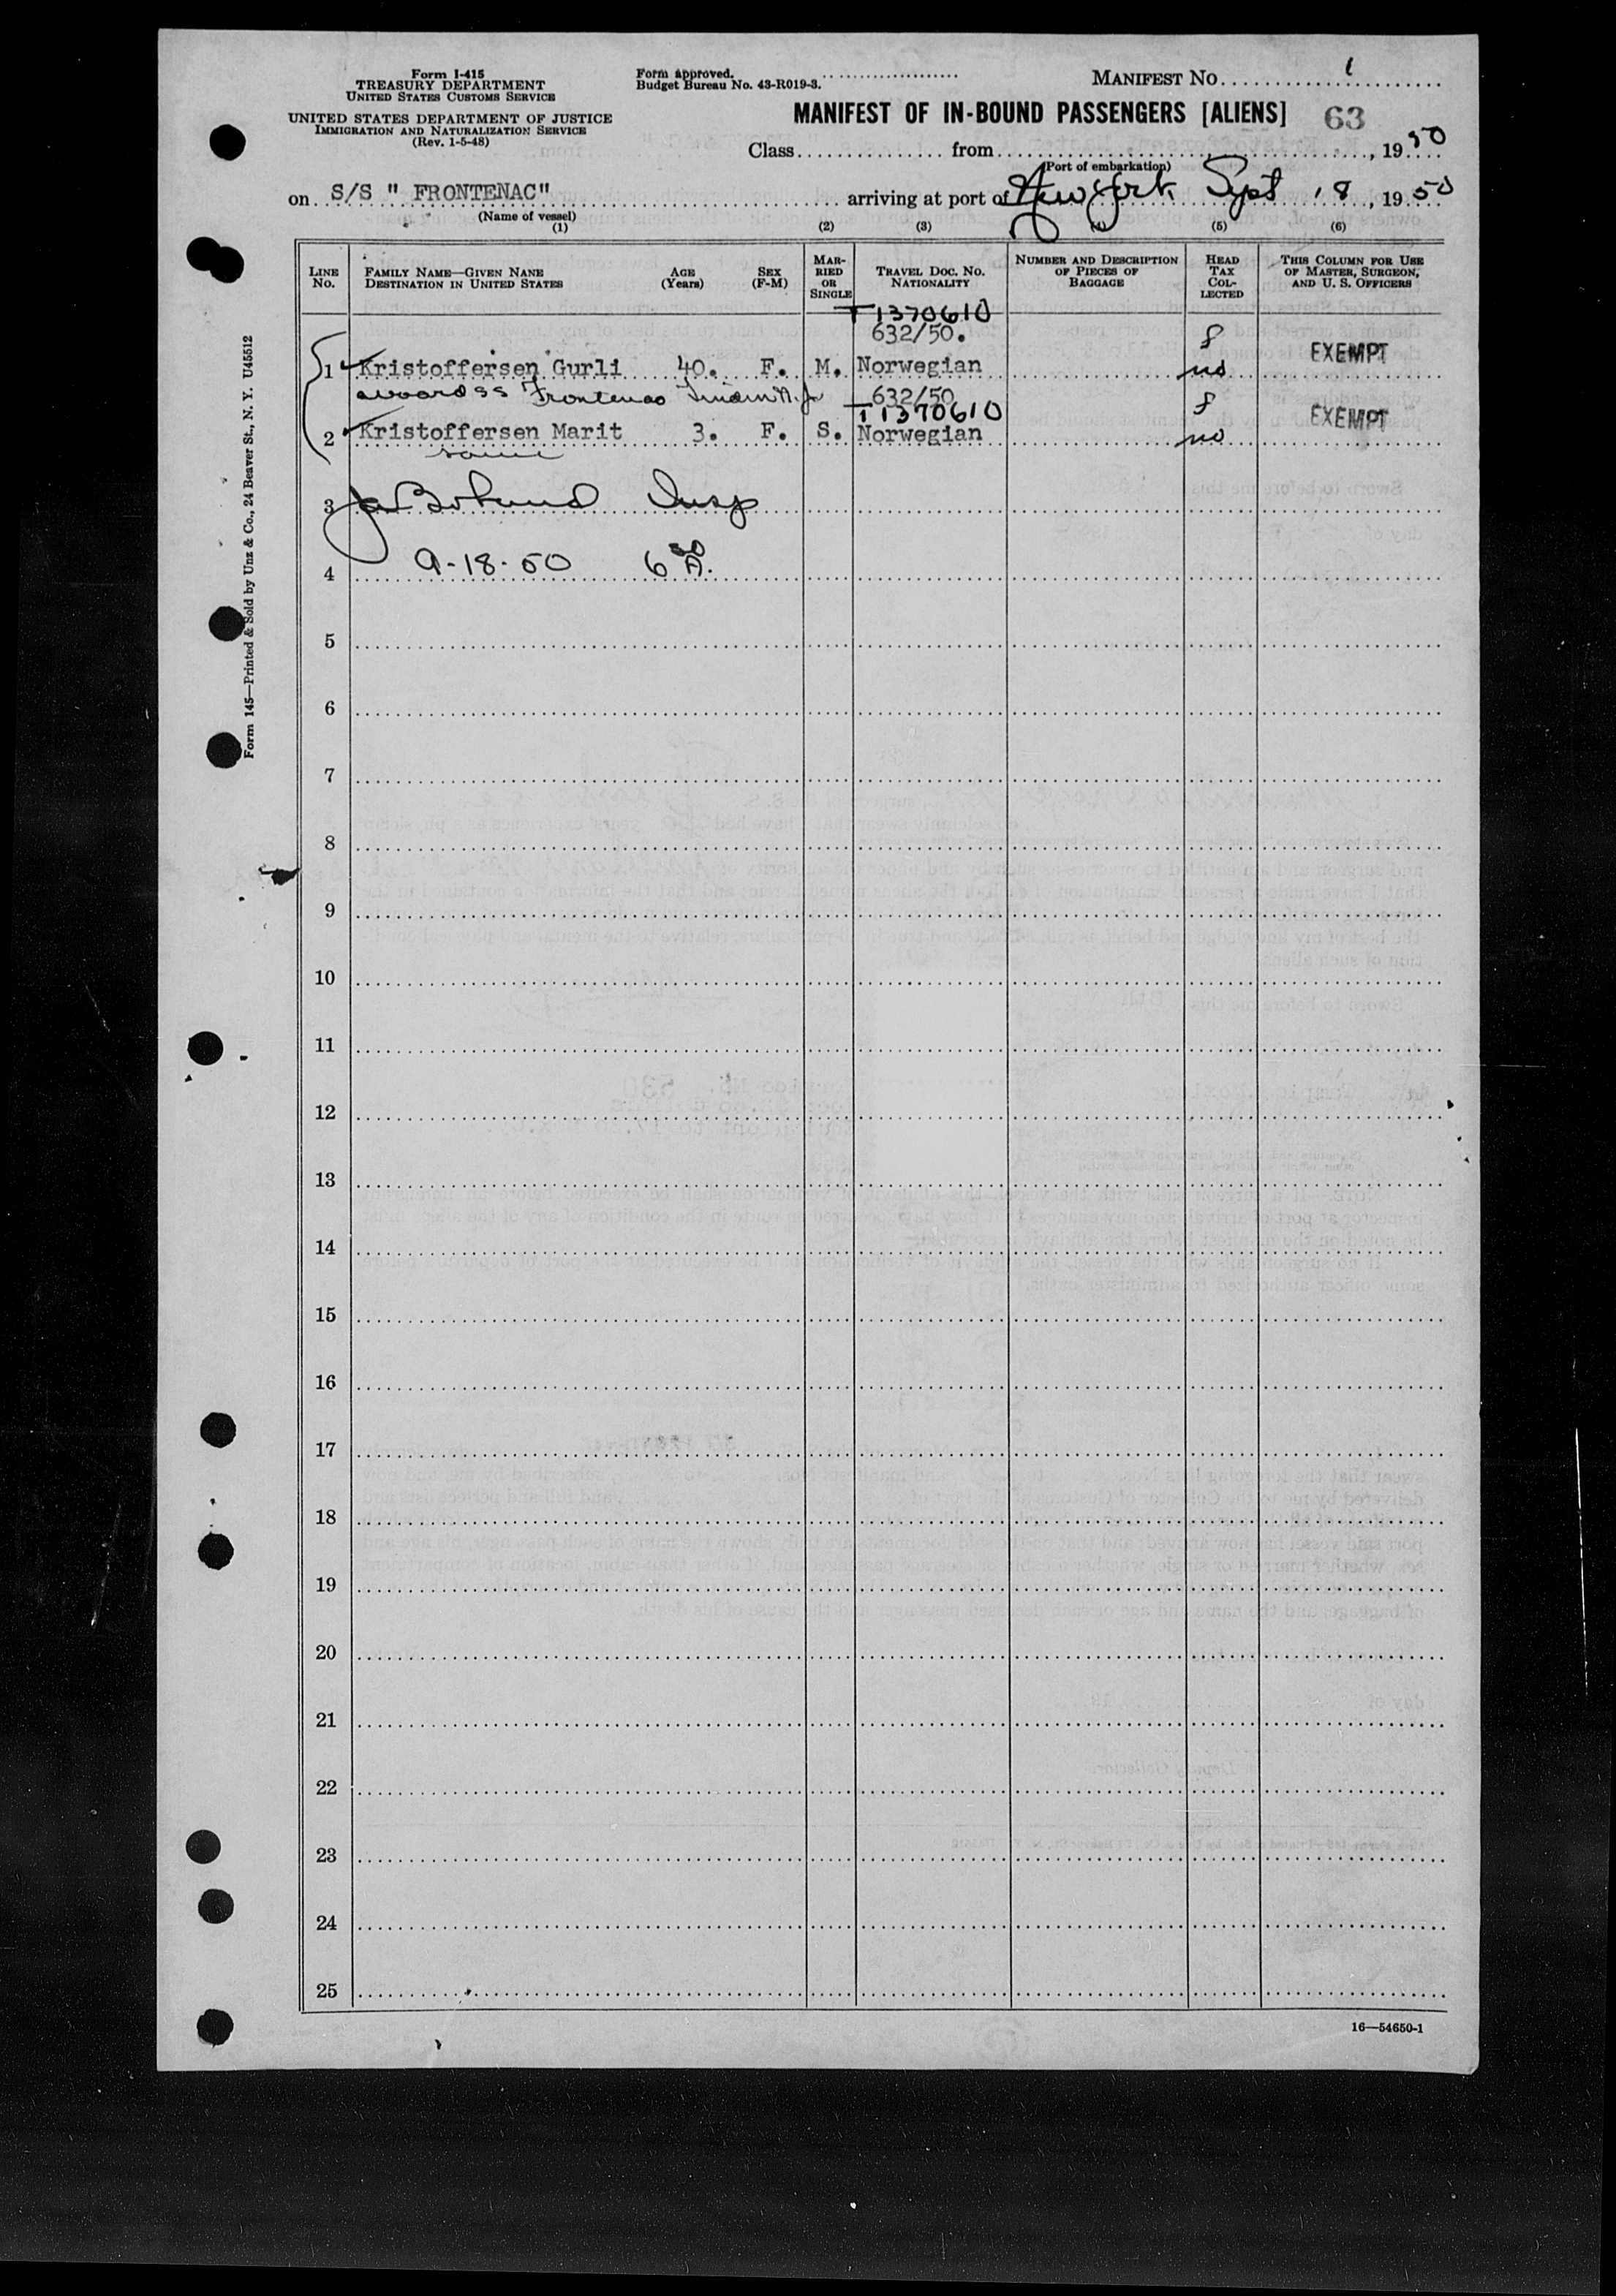 Form I-415
TREASURY DEPARTMENT
UNITED STATES CUSTOMS SERVICE
UNITED STATES DEPARTMENT OF JUSTICE
IMMIGRATION AND NATURALIZATION SERVICE
(Rev. 1-5-48)
Form approved.
Budget Bureau No. 43-R019-3.
MANIFEST NO. 1
MANIFEST OF IN-BOUND PASSENGERS [ALIENS] 63
Class from , 1950
(Port of embarkation)
on S/S " FRONTENAC" arriving at port of New York Sept 18, 1950
(Name of vessel)
(1) (2) (3) (4) (5) (6)
LINE NO.
FAMILY NAME—GIVEN NANE
DESTINATION IN UNITED STATES
AGE
(Years)
SEX
(F-M)
MAR-
RIED
OR
SINGLE
TRAVEL DOC. NO.
NATIONALITY
NUMBER AND DESCRIPTION
OF PIECES OF
BAGGAGE
HEAD
TAX
COL-
LECTED
THIS COLUMN FOR USE
OF MASTER, SURGEON,
AND U. S. OFFICERS
T1370610
632/50.
1 Kristoffersen Gurli 40. F. M. Norwegian no EXEMPT
aboard ss Frontenac 632/50
T1370610
2 Kristoffersen Marit 3. F. S. Norwegian no EXEMPT
same
3 Insp
4 9-18-50 6 30 A.
5
6
7
8
9
10
11
12
13
14
15
16
17
18
19
20
21
22
23
24
25
16—54650-1
Form 145—Printed & Sold by Unz & Co., 24 Beaver St., N. Y. U45512